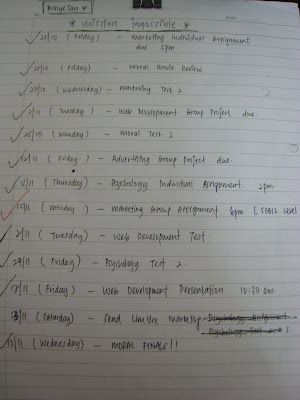 * Mission Impossible *
22/10 (Friday) - Marketing Individual Assignment
due 5pm
(Friday) - Moral Movie Review
27/10 (Wednesday) - Marketing Test 2
2/11 (Tuesday) - Web Development Group Project due
25/10 (Monday) - Moral Test 2
12/11 (Friday) - Advertising Group Project due
(Thursday) - Psychology Individual Assignment 2pm
15/11 (Monday) - Marketing Group Assignment 6pm [ Level
2/11 (Tuesday) - Web Development Test
(Friday) - Psychology Test 2
(Friday) - Web Development Presentation 10:30 am
13/11 (Saturday) - Send Marketing
Psychology Test 3
10/11 (Wednesday) - MORAL FINALS!!